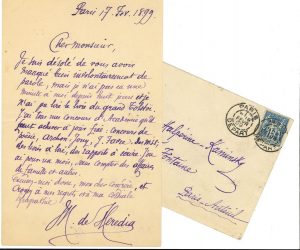 Paris 17 Fév. 1899
Cher monsieur,
Je suis désolé de vous avoir
manqué bien involontairement de
parole, mais je n'ai pas eu une
minute à moi depuis huit jours et je
n'ai pu lire le livre du grand Tolstoï
J'ai tous mes concours d'Académie qu'il
faut achever à jour fixe: concours de
poésie, Archon, Jouy, J.
des rapports à écrire
ai pour un mois. Sans compter les affaires
de famille et autres.
Excusez-moi donc, mon cher confrère, et
Croyez à mes regrets et à ma cordiale
sympathie
J. M. de Heredia
PARIS
DEPART
Halpérine-Kaminsky
Fontaine